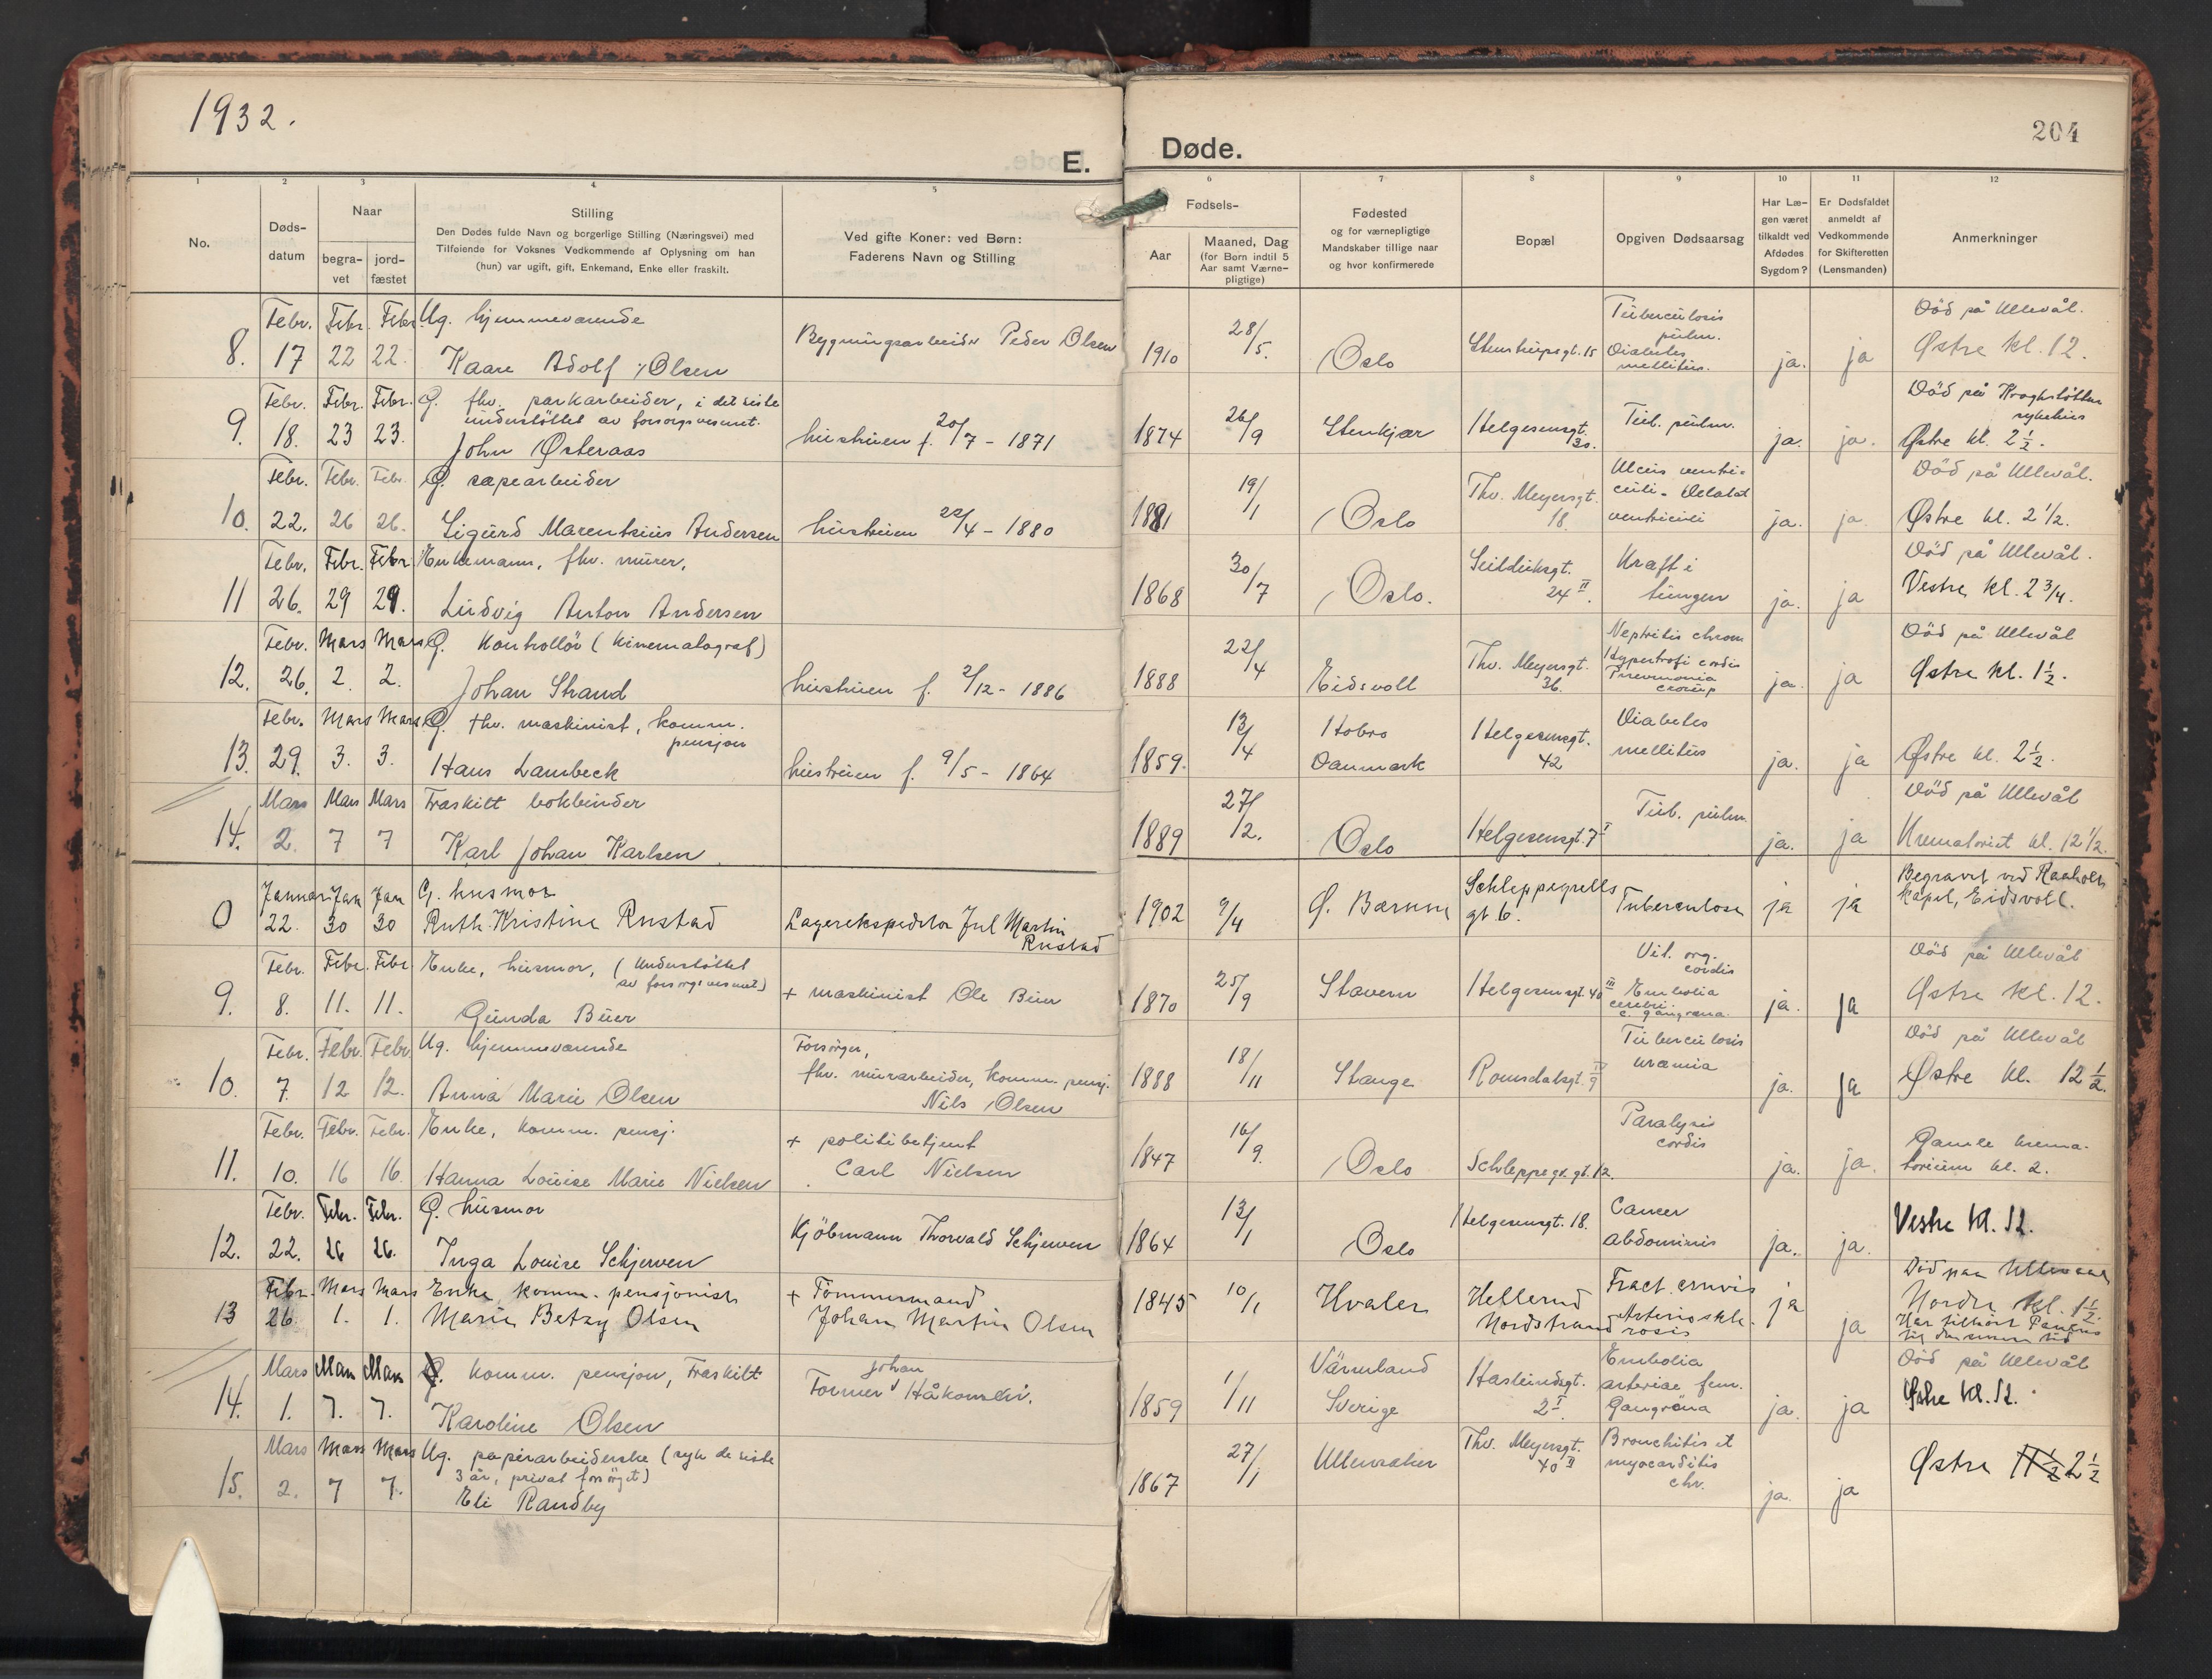 1932.
204
E. Døde.
1 2 3 4 5 6 7 8 9 10 11 12
No.
Døds-
datum
Naar
begra-
vet
jord-
fæstet
Stilling
Den Dødes fulde Navn og borgerlige Stilling (Næringsvei) med
Tilføiende for Voksnes Vedkommende af Oplysning om han
(hun) var ugift, gift, Enkemand, Enke eller fraskilt.
Ved gifte Koner: ved Børn:
Faderens Navn og Stilling
Fødsels-
Aar
Maaned, Dag
(for Børn indtil 5
Aar samt Værne-
pligtige)
Fødested
og for værnepligtige
Mandskaber tillige naar
og hvor konfirmerede
Bopæl
Opgiven Dødsaarsag
Har Læ-
gen været
tilkaldt ved
Afdødes
Sygdom?
Er Dødsfaldet
anmeldt af
Vedkommende
for Skifteretten
(Lensmanden)
Anmerkninger
8. Febr. 17 Febr. 22 Febr. 22. Ug. hjemmeværende
Kaare Adolf Olsen
Bygningsarbeider Peder Olsen
1910 28/5. Oslo Stenstrupsgt. 15
Tuberculosis
pulm.
Diabetes
mellitus.
ja. ja
Död på Ullevål.
Østre kl. 12.
9. Febr. 18. Febr. 23 Febr. 23. G. fhv. parkarbeider, i det siste
understöttet av forsorgsvesenet.
John Østeraas
hustruen f. 20/7 - 1871
1874 26/9 Stenkjær Helgesensgt. 30. Tub. pulm. ja. ja.
Död på Krogstötten
sykehus
Østre kl. 2 1/2.
10. Febr. 22. Febr. 26 Febr. 26. G. sæpearbeider
Sigurd Marentsius Andersen
hustruen 22/4 - 1880
1881 19/1 Oslo Thv. Meyersgt. 18.
Ulcus ventri-
culi - Dilatat
ventriculi
ja. ja.
Död på Ullevål.
Østre kl. 2 1/2.
11 Febr. 26. Febr. 29 Febr. 29. Enkemann, fhv. murer,
Ludvig Anton Andersen
1868 30/7 Oslo. Seilduksgt. 24 II.
Kræft i
lungen
ja. ja
Död på Ullevål.
Vestre kl. 2 3/4.
12. Febr. 26. Mars 2. Mars 2. G. Kontrollör (Kinematograf)
Johan Strand
hustruen f. 2/12 - 1886
1888 22/4 Eidsvoll Thv. Meyersgt. 36.
Nephritis chron
Hypertrofi cordis
Pneumonia
croup
ja. ja
Död på Ullevål
Østre kl. 1 1/2.
13. Febr. 29. Mars 3. Mars 3. G. fhv. maskinist, komm.
pensjon
Hans Lambeck
hustruen f. 9/5 - 1864
1859. 13/4 Hobro
Danmark
Helgesensgt. 42
Diabetes
mellitus
ja. ja
Østre kl. 2 1/2.
14. Mars 2. Mars 7 Mars 7 Fraskilt bokbinder
Karl Johan Karlsen
1889 27/12. Oslo Helgesensgt. 7 I Tub. pulm. ja. ja
Död på Ullevål
Krematoriet kl. 12 1/2.
0 Januar 22. Jan 30 Jan 30 G. husmor
Ruth Kristine Rustad
Lagerekspeditor Jul Martin
Rustad
1902 9/4 Ø. Bærum Schleppegrells
gt 6.
Tuberculose ja ja
Begravet ved Raaholt
kapel, Eidsvoll.
9. Febr. 8. Febr. 11. Febr. 11. Enke, husmor, (Understöttet
av forsorgsvesenet)
Gunda Buer
+ maskinist Ole Buer
1870 25/9 Stavern Helgesensgt. 40 III
Vit. org.
cordis
Embolia
cerebri.
c. gangræna.
ja. ja
Död på Ullevål
Østre kl. 12.
10. Febr. 7. Febr. 12 Febr. 12. Ug. hjemmeværende
Anna Marie Olsen
Forsörger,
fhv. murarbeider, komm. pensj.
Nils Olsen
1888 18/11 Stange Romsdalsgt. 9 IV
Tuberculosis
uræmia
ja. ja
Död på Ullevål
Østre kl. 12 1/2.
11. Febr. 10. Febr. 16 Febr. 16. Enke, komm. pensj.
Hanna Louise Marie Nielsen
+ politibetjent
Carl Nielsen
1847 16/9. Oslo Schleppegr. gt. 12.
Paralysis
cordis
ja. ja.
Gamle krema-
torium kl. 2.
12. Febr. 22. Febr. 26 Febr. 26. G. husmor
Inga Louise Schjerven
Kjöbmann Thorvald Schjerven
1864 13/1 Oslo Helgesensgt. 18.
Cancer
abdominis
ja. ja.
Vestre kl. 12.
13 Febr. 26. Mars 1. Mars 1. Enke, komm. pensjonist
Marie Betzy Olsen
+ Tömmermand
Johan Martin Olsen
1845 10/1 Hvaler Hellerud
Nordstrand
Fract. cruris
Arteriosskle-
rosis
ja ja
Död paa Ullevaal
Nordre kl. 1 1/2.
Har tilhört Paulus
14. Mars 1. Mars 7. Mars 7. G. komm. pensjon, Fraskilt
Karoline Olsen
Johan
Former Håkonsen.
1859 1/11 Värmland
Sverige
Haslundsgt. 2 I.
Embolia
arteriae fem.
Gangräna
ja. ja
Död på Ullevål
Østre kl. 12.
15. Mars 2. Mars 7 Mars 7. Ug. papirarbeiderske (syk de siste
3 år, privat forsörget)
Eli Randby
1867 27/1 Ullensaker Thv. Meyersgt. 40 II
Bronchitis et
myocarditis
chr.
ja. ja
Østre 11 1/2 2 1/2